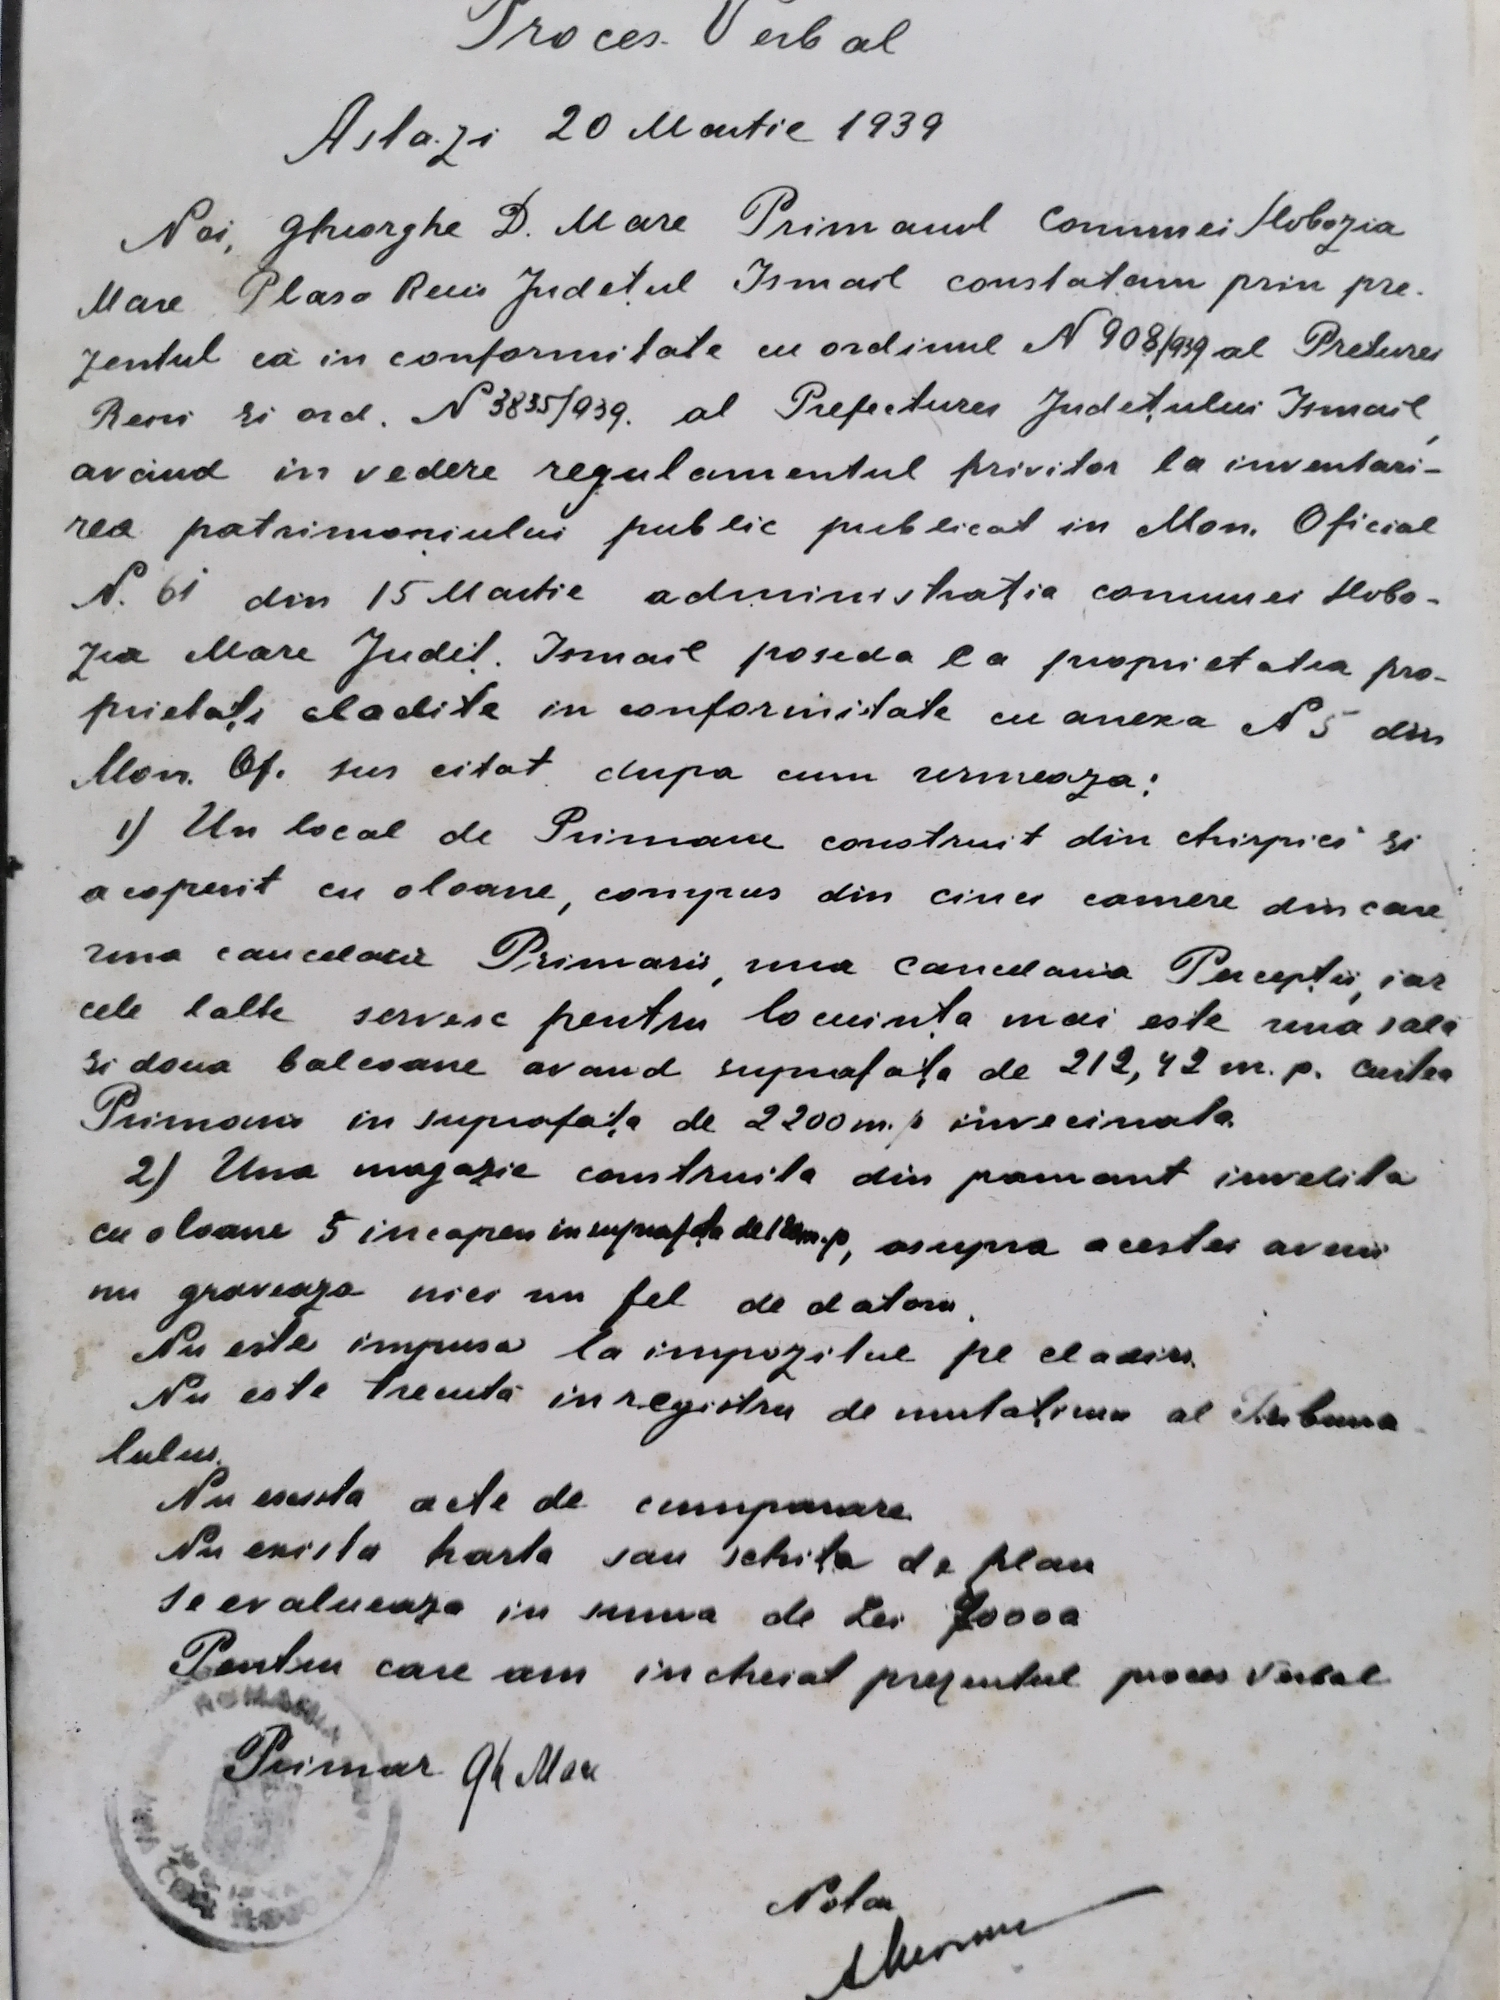 Proces-Verbal
Astazi 20 Martie 1939
Noi, Gheorghe D. Mare Primarul Comunei Slobozia
Mare Plasa Reni Județul Ismail constatam prin pre-
zentul că in conformitate cu ordinul N 908/939 al Preturei
Reni și ord. N 3835/939. al Prefecturei Județului Ismail,
având in vedere regulamentul privitor la inventari-
rea patrimoniului public publicat in Mon. Oficial
N. 61 din 15 Martie administrația comunei Slobo-
zia Mare Județ. Ismail poseda la proprietatea pro-
prietați cladite in conformitate cu anexa N 5 din
Mon. Of. sus citat dupa cum urmeaza:
1) Un local de Primarie construit din chirpici și
acoperit cu oloane, compus din cinci camere din care
una cancelarie Primarii, una Cancelaria Percepții, iar
cele lalte servesc pentru locuința mai este una sală
și doua balcoane avand suprafața de 212,42 m.p. curtea
Primariei in suprafața de 2200 m.p invecinata
2) Una magazie construita din pamant invelita
cu oloane 5 incaperi in suprafața de m.p, asupra acestei averi
nu graveaza nici un fel de datorii.
Nu este impusa la impozitul pe cladiri
Nu este trecută in registru de mutațiuni al Tribuna-
lului.
Nu exista acte de cumparare
Nu exista harta sau schița de plan
Se evalueaza in suma de Lei 70000
Pentru care am incheiat prezentul proces Verbal
ROMANIA
Primar Gh Mare
Notar